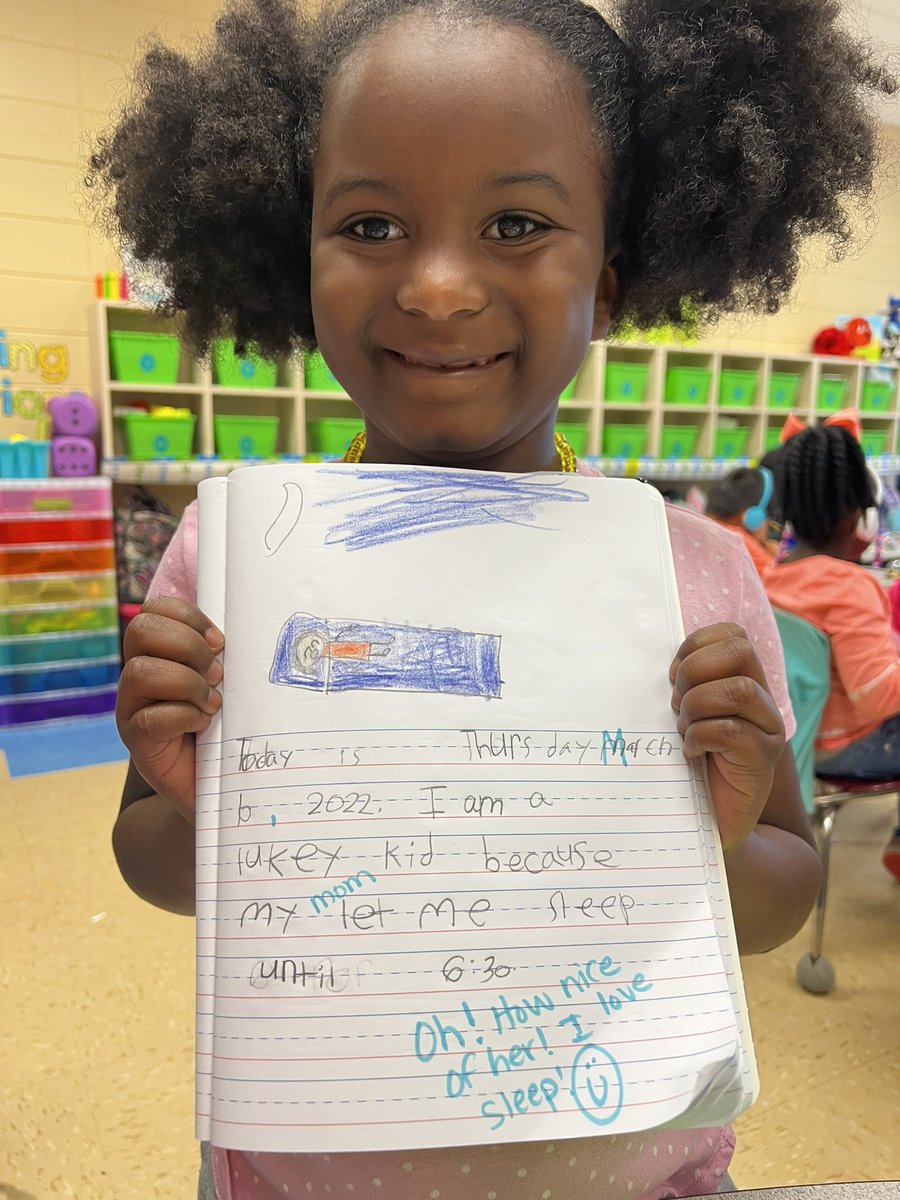 ing
Today is Thursday March
6, 2022. I am a
lukey kid because
my mom let me sleep
until 6:30.
Oh! How nice
of her! I love
sleep!